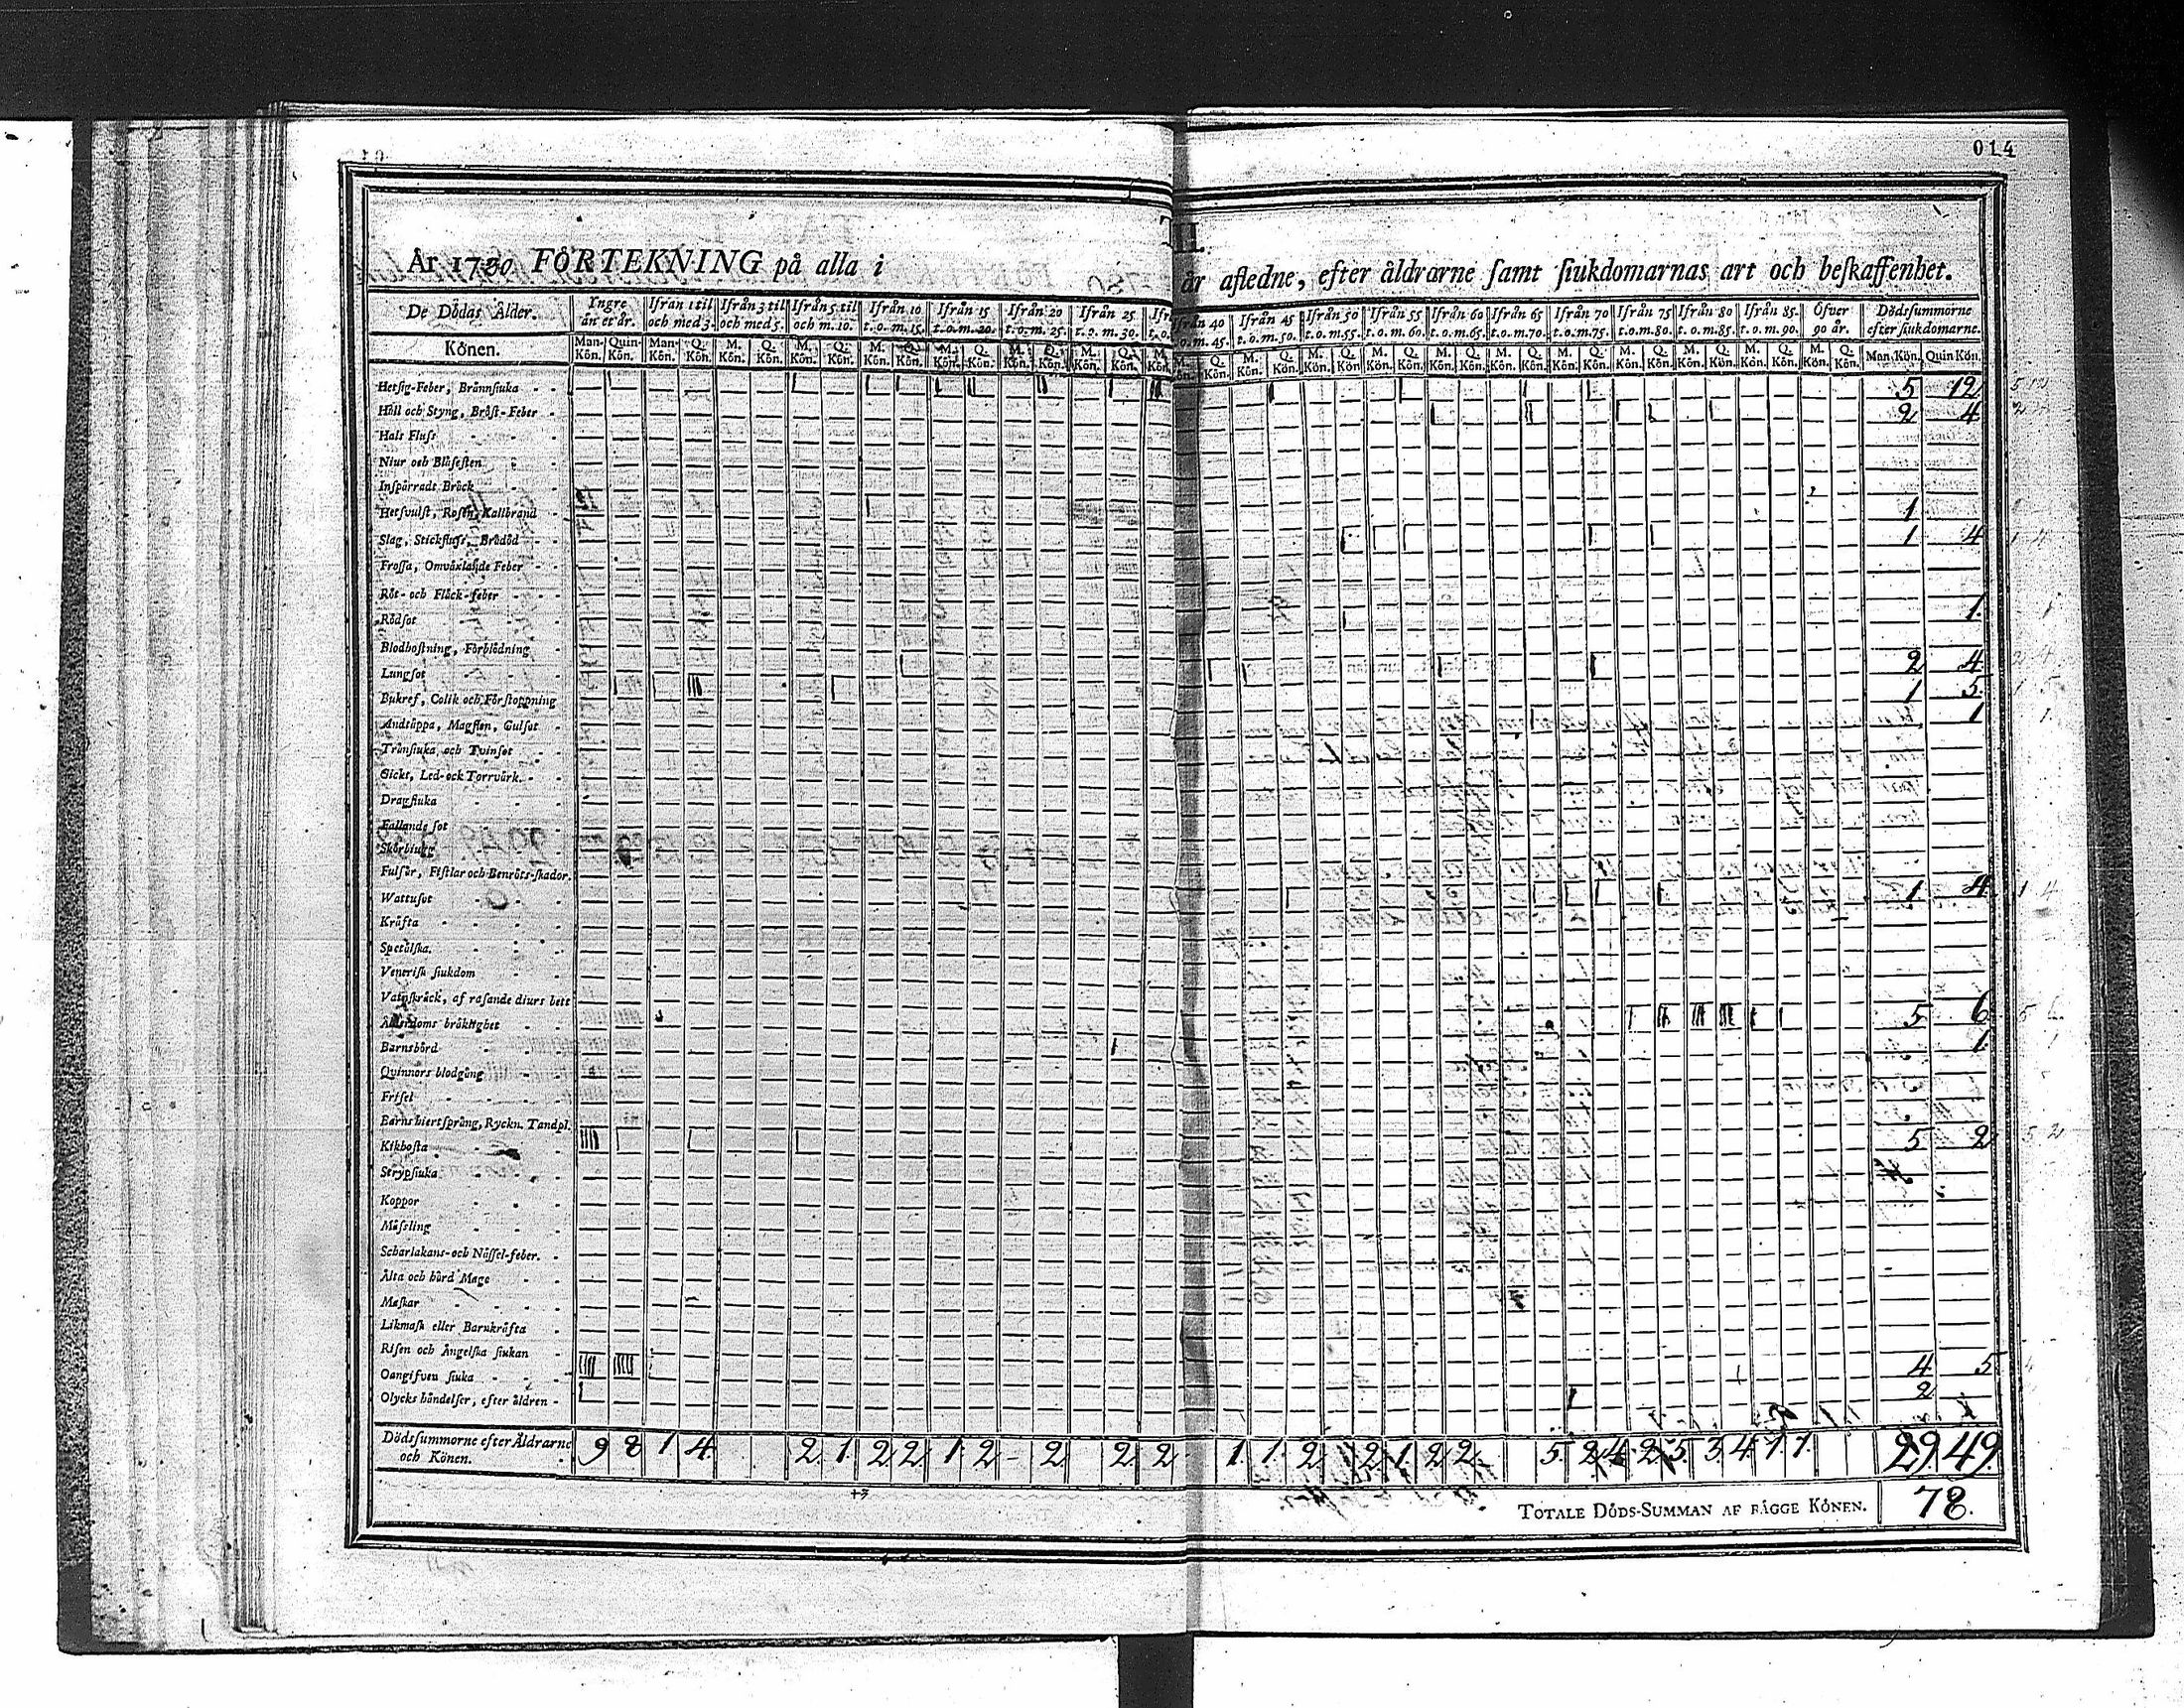 014
II.
År 1780 FÖRTEKNING på alla i år afledne, efter åldrarne samt siukdomarnas art och beskaffenhet.
De Dödas Ålder. Yngre än et år. Ifrån 1 til och med 3. Ifrån 3 til och med 5. Ifrån 5 til och m. 10. Ifrån 10 t. o. m. 15. Ifrån 15 t. o. m. 20. Ifrån 20 t. o. m. 25. Ifrån 25 t. o. m. 30. Ifrån 40 t. o. m. 45. Ifrån 45 t. o. m. 50. Ifrån 50 t. o. m. 55. Ifrån 55 t. o. m. 60. Ifrån 60 t. o. m. 65. Ifrån 65 t. o. m. 70. Ifrån 70 t. o. m. 75. Ifrån 75 t. o. m. 80. Ifrån 80 t. o. m. 85. Ifrån 85. t. o. m. 90. Öfver 90 år. Dödssummorne efter siukdomarne.
Könen. Man-Kön. Quin-Kön. Man-Kön. Q. Kön. M. Kön. Q. Kön. M. Kön. Q. Kön. M. Kön. Q. Kön. M. Kön. Q. Kön. M. Kön. Q. Kön. M. Kön. Q. Kön. Man. Kön. Quin Kön.
Hetsig-Feber, Brännsiuka 5 12
Håll och Styng, Bröst-Feber 2 4
Hals Fluss
Niur och Blåsesten
Inspärradt Bråck
Hetsvulst, Rosen, Kallbrand 1
Slag, Stickfluss, Brådöd 1 4
Frossa, Omväxlande Feber
Röt- och Fläck-feber
Rödsot 1.
Blodhostning, Förblödning
Lungsot 2 4
Bukref, Colik och Förstoppning 1 5.
Andtäppa, Magsten, Gulsot 1
Trånsiuka och Tvinsot
Gickt, Led- ock Torrvärk.
Dragsiuka
Fallande sot
Skörbiugg
Fulsår, Fistlar och Benröts-skador.
Wattusot 1. 4.
Kräfta
Spetälska.
Venerisk siukdom
Vatnskräck, af rasande diurs bett
Ålderdoms bräklighet 5 6
Barnsbörd 1.
Qvinnors blodgång
Frisel
Barns hiertsprång, Ryckn. Tandpl.
Kikhosta 5 2
Strypsiuka
Koppor
Mässling
Scharlakans- och Nässel-feber.
Älta och hård Mage
Maskar
Likmask eller Barnkräfta
Risen och Ängelska siukan
Oangifven siuka 4 5
Olycks händelser, efter åldren 2
Dödssummorne efter Åldrarne och Könen. 9 8 1 4. 2. 1. 2 2. 1 2 - 2 2 2 1. 1. 2 2 1. 2 2. 5. 2 4 2 5. 3. 4 1 1. 29. 49.
TOTALE DÖDS-SUMMAN AF BÄGGE KÖNEN. 78.